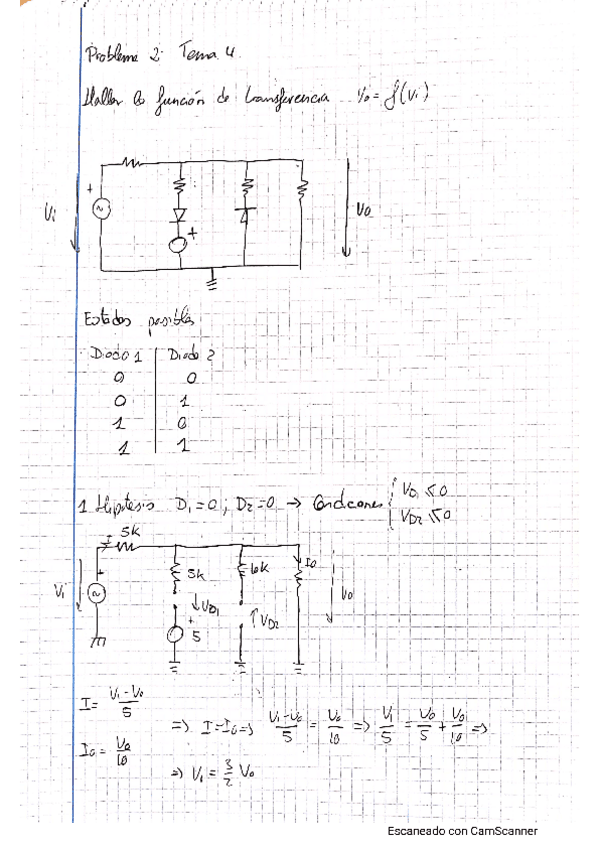 Problema 2: Tema 4.
Hallar la función de transferencia Vo = f(Vi)
+
Vi
+
Vo
Estados posibles
Diodo 1 | Diodo 2
0 | 0
0 | 1
1 | 0
1 | 1
1 Hipótesis D1 = 0 ; D2 = 0 → Condiciones { VD1 ≤ 0
VD2 ≤ 0
I 5k
Vi + 5k ↓VD1 + 5 6k ↑VD2 Io Vo
I = (Vi - Vo)/5
⇒ I = Io ⇒ (Vi - Vo)/5 = Vo/10 ⇒ Vi/5 = Vo/5 + Vo/10 ⇒
Io = Vo/10
⇒ Vi = 3/2 Vo
Escaneado con CamScanner